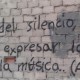 del silencio,
expresar lo
la música..